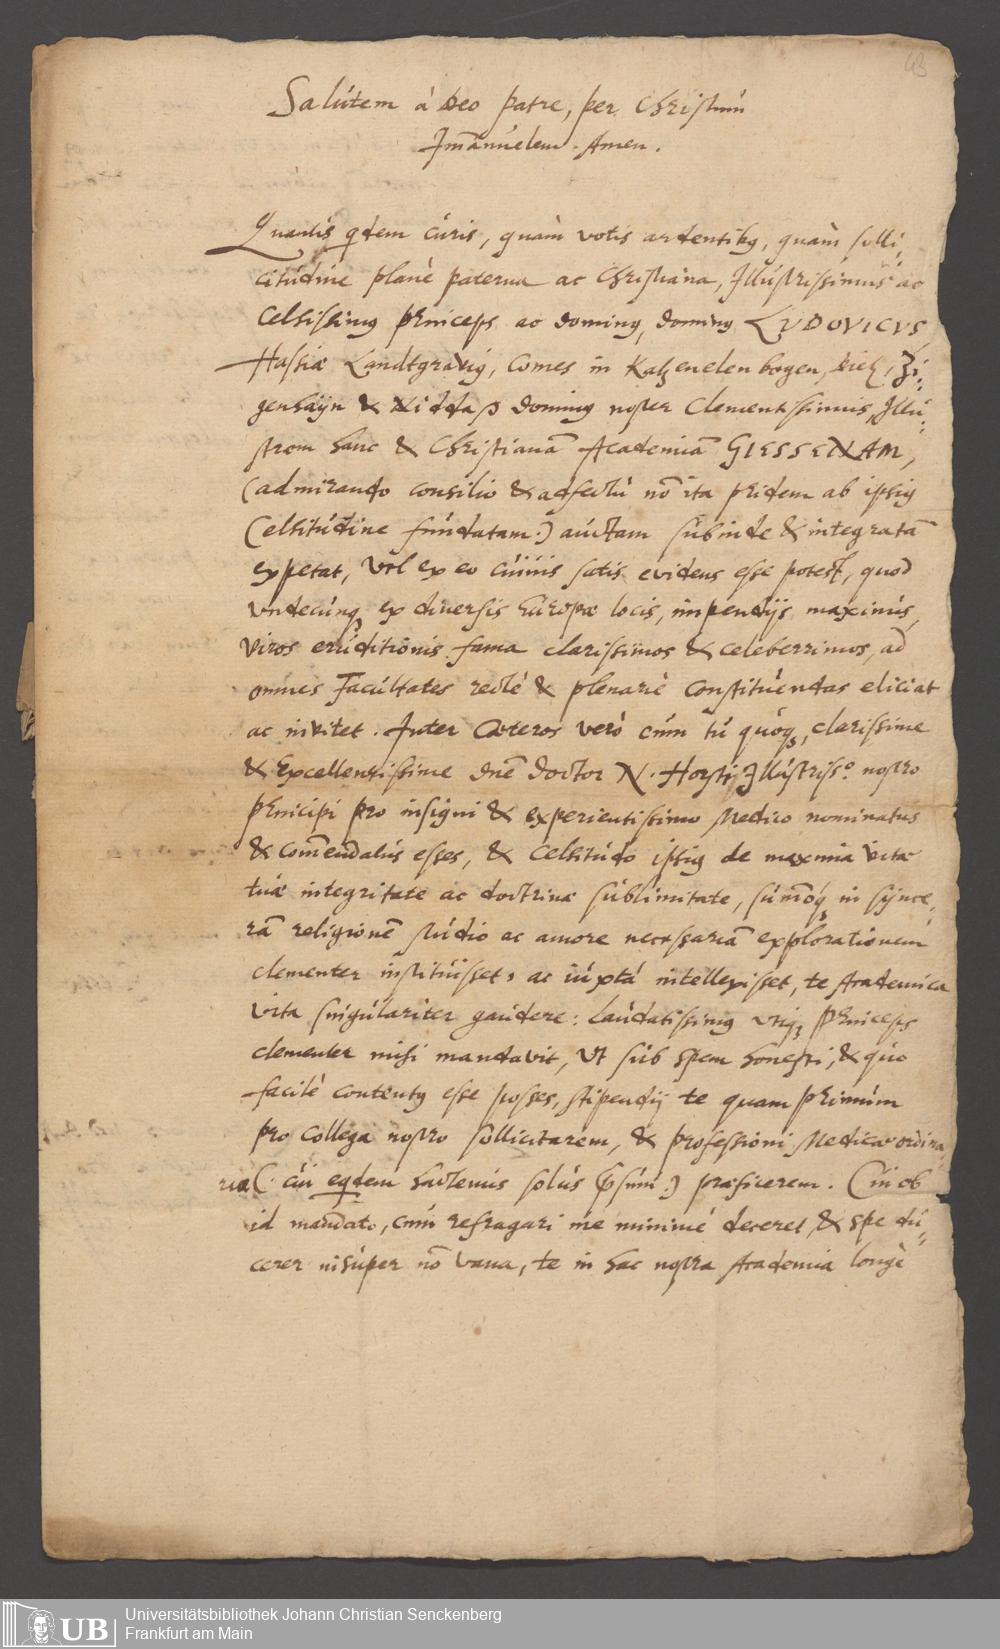 43
Salútem á Deo patre, per Christum
Im̄anúelem. Amen.
Quantis qdem cúris, quàm votis ardentibꝫ, quàm solli-
citúdine planè paterna ac Christiana, Illústrissimus ac
Celsissimꝫ Princeps ac dominꝫ, dominꝫ LUDOVICUS,
Hassiæ Landtgravig, Comes in Katzenelenbogen, Dietz, Zi-
genhaÿn & Nidda p dominꝫ noster Clementissimus, Illú-
strem hanc & Christianā Academiā GIESSENAM,
(admirando consilio & adfectú nō ita pridem ab ipsiꝫ
Celsitúdine fúndatam.) aúctam súbinde & integratā
expetat, vel ex eo cúivis satis evidens esse potest, quod
vndecúnqꝫ ex diversis Eúropæ locis, impendijs maximis,
viros erúditionis fama clarissimos & celeberrimos, ad
omnes Facúltates rectè & plenariè constitúendas eliciat
ac invitet. Inter Cæteros verò cúm tú quóqꝫ, clarissime
& Excellentissime Dnē Doctor N. Horsti, Illústrisso. nostro
Principi pro insigni & experientissimo Medico nominatus
& com̄endatús esses, & Celsitúdo ipsiꝫ de maxima vitæ
túæ integritate ac doctrinæ súblimitate, súm̄óqꝫ in sÿnce-
rā religionē stúdio ac amore necessariā explorationem
clementer institúisset, ac iúxtá intellexisset, te Academica
vita singúlariter gaúdere: Laúdatissimꝫ vtiqꝫ Princeps
clementer mihi mandavit, vt súb spem honesti, & quo
facilè contentꝫ esse posses, stipendij te quam primúm
pro Collega nostro sollicitarem, & professioni Medicæ ordina
riæ (. cúi eqdem hactenús solús præsúm.) præficerem. Cúi ob
id mandato, cúm refragari me minimé deceret, & spe dú-
cerer insúper nō vana, te in hac nostra Academia longè
UB
Universitätsbibliothek Johann Christian Senckenberg
Frankfurt am Main